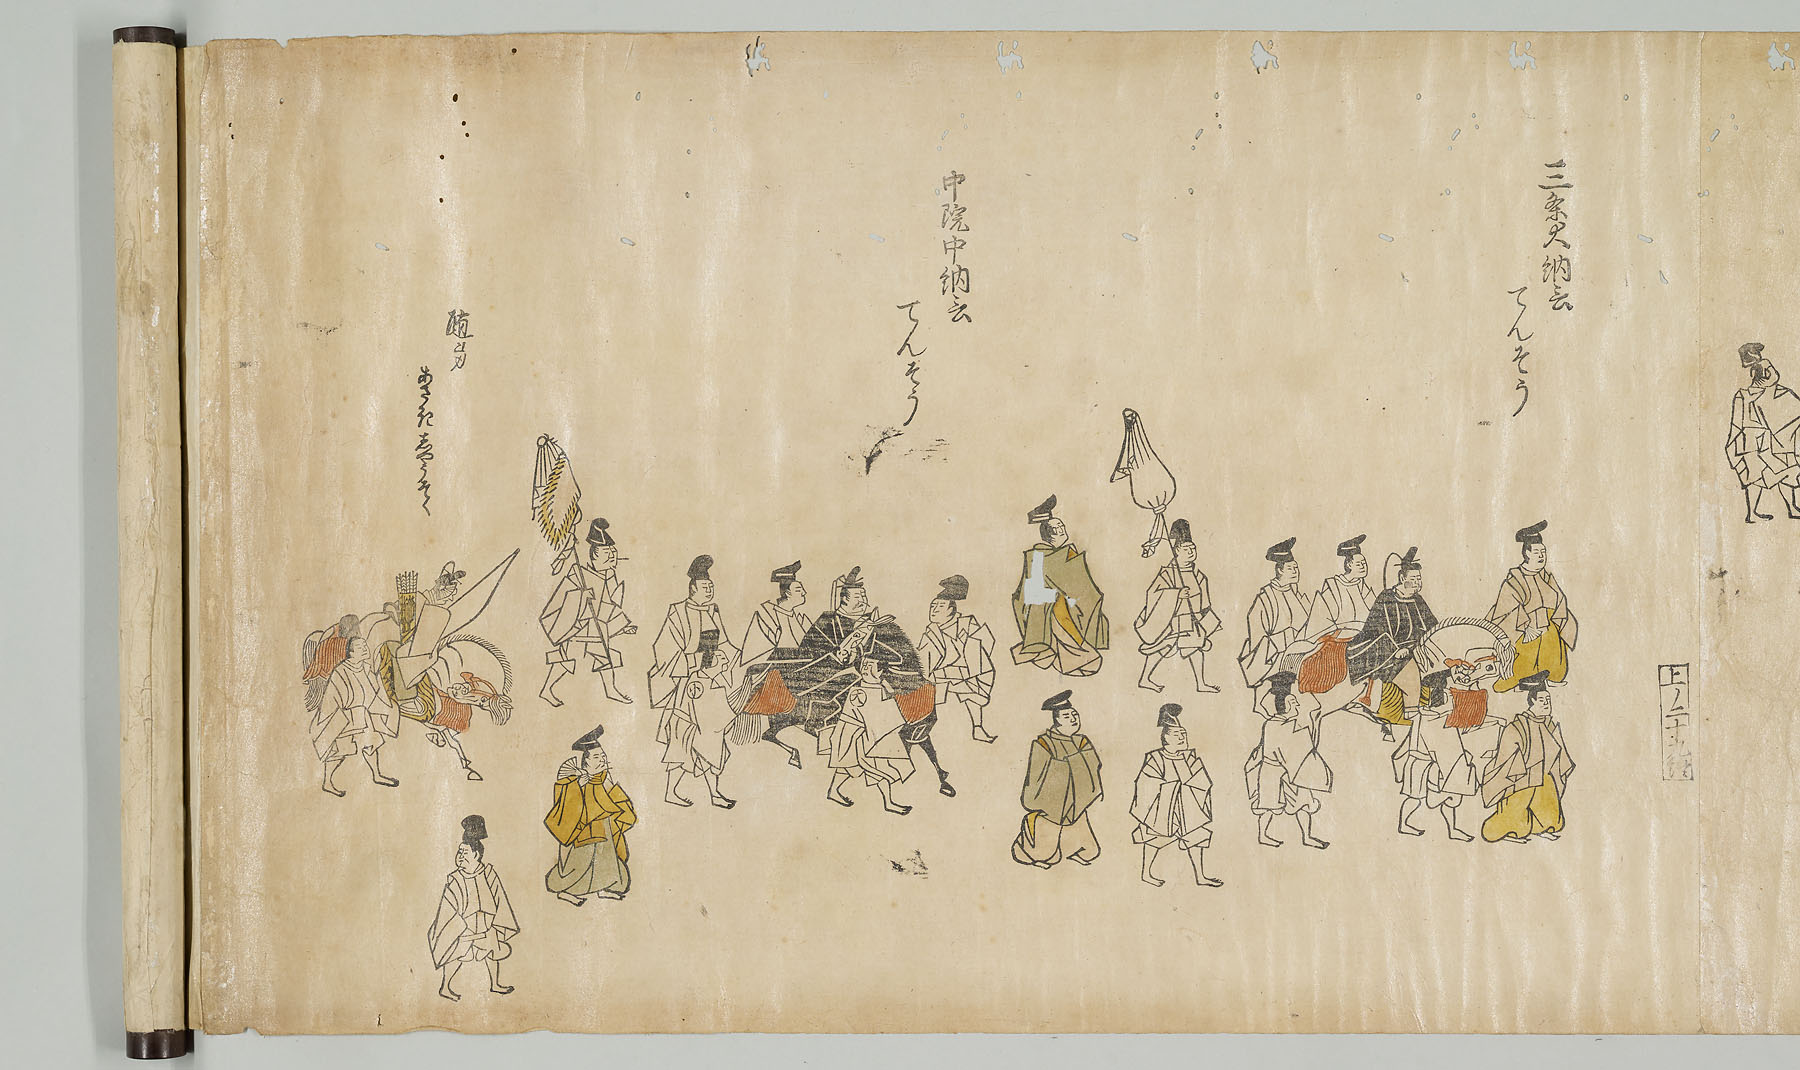 三条大納言
てんそう
中院中納言
てんそう
随身
上ノ二十九終